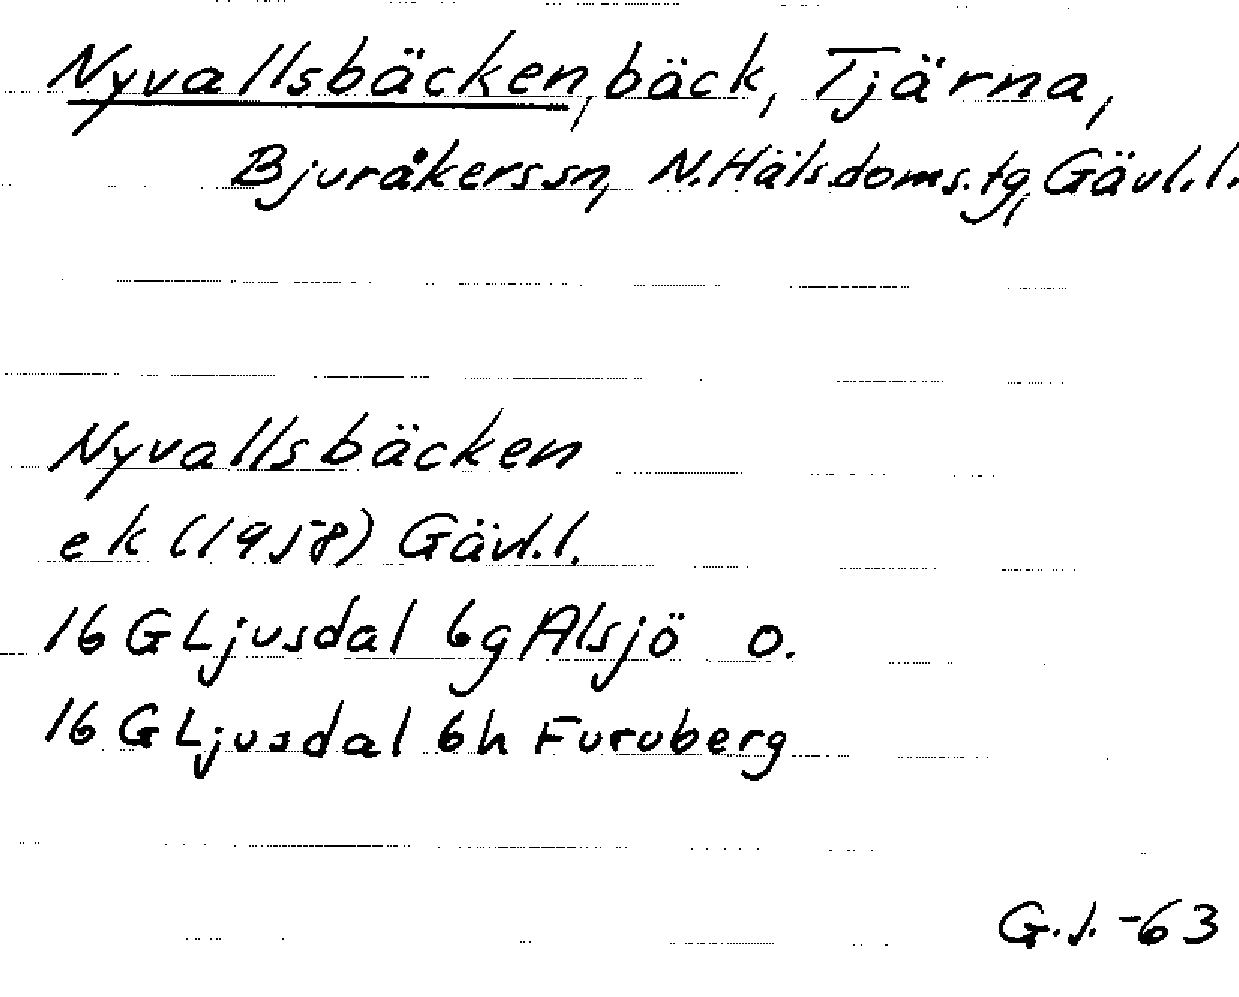 Nyvallsbäcken, bäck, Tjärna,
Bjuråkers sn, N. Häls. doms. tg, Gävl. l.
Nyvallsbäcken
ek (1958) Gävl. l.
16 G Ljusdal 6g Alsjö o.
16 G Ljusdal 6h Furuberg
G.J. -63